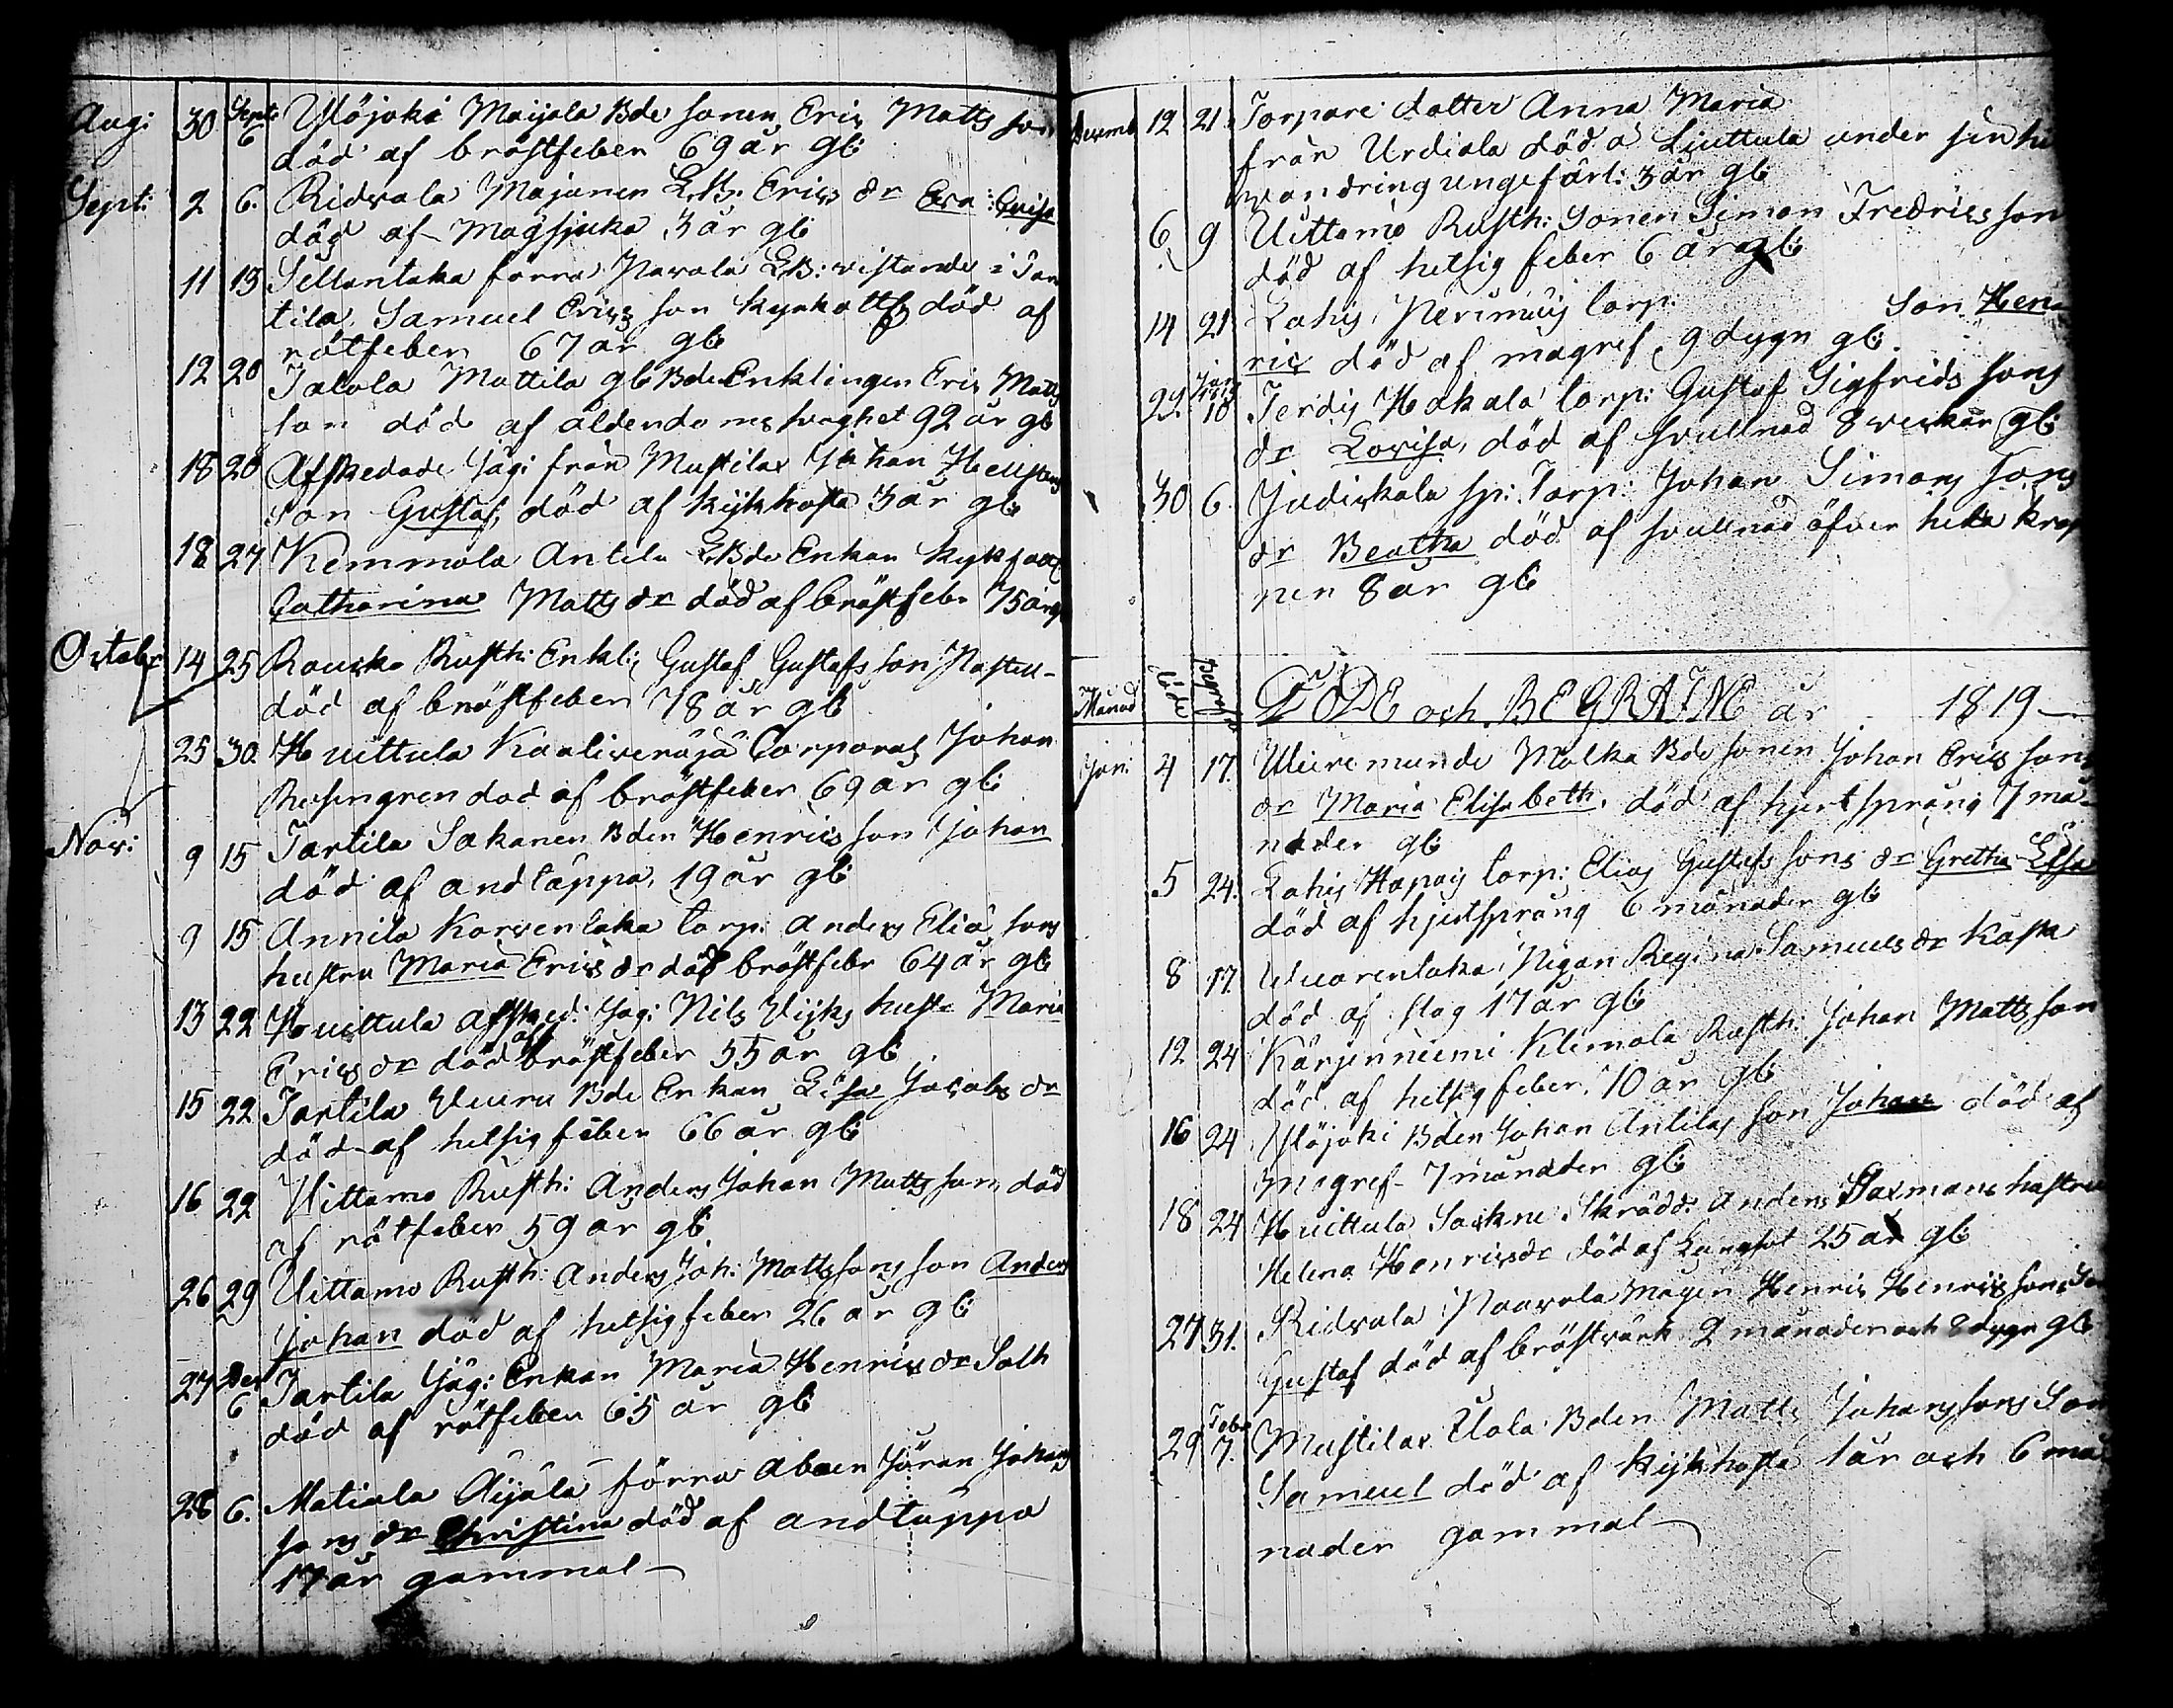 Aug: 30 Sept: 6 Yllöjoki Maijala Bde sonen Eric Matts son
död af bröstfeber 69 år gl:
Sept: 2 6. Ridvala Majanen LB: Erics dr Eva: Caisa
död af Magsjuka 3 år gl:
11 13 Sellentaka förra Navala LB: vistande i Tar
tila, Samuel Erics son kyrkottig död af
rötfeber 67 år gl:
12 20 Talola Mattila gl: Bde Enklingen Eric Matts
son död af ålderdoms svaghet 92 år gl:
18 20 Afskedade Jäg: från Mustilax Johan
son Gustaf, död af kikhosta 3 år gl:
18 27 Kemmola Antila LBde Enkan
Catharina Matts dr död af bröstfebr 75 år gl
Octobr: 14 25 Rouska Rusth: Enkli: Gustaf Gustafs son
död af bröstfeber 78 år gl:
25 30. Huittula Kaaliveräjä Corporas Johan
Rosengren död af bröstfeber 69 år gl:
Nov: 9 15 Tartila Sakanen Bden Henrics son Johan
död af andtäppa, 19 år gl:
9 15 Annila Korventaka torp: Anders Elia sons
hustru Maria Erics dr död bröstfebr 64 år gl:
13 22 Huittula afsked: Jäg: Nils Vijks hustr Maria
Erics dr död af bröstfeber 55 år gl:
15 22 Tartila Uuru Bde Enkan Lisa Jacobs dr
död af hetsig feber 66 år gl:
16 22 Uittamo Rusth: Anders Johan Matts son död
af rötfeber 59 år gl:
26 29 Uittamo Rusth: Anders Joh: Matts sons son Anders
Johan död af hetsig feber 26 år gl:
27 Dec 6 Tartila Jäg: Enkan Maria Henrics dr Salt
död af rötfeber 65 år gl:
28 6. Matiala Äijälä förra Åboen Jöran Johans
sons dr Christina död af andtäppa
17 år gammal
Decemb 12 21 Torpare dotter Anna Maria
från Urdiala död å Liuttula under sin
wandring ungefärl: 3 år gl:
6 9 Uittamo Rusth: Sonen Simon Fredrics son
död af hetsig feber 6 år gl:
14 21 Lahis, torp: Son Hen-
ric död af magref, 9 dygn gl:
29. 1819 10 Terdis Hakala torp: Gustaf Sigfrids sons
dr Lovisa, död af svullnad 8 veckor gl:
30 6. Judickala sp: Torp: Johan Simons sons
dr Beatha död af svullnad öfver hela krop
pen 8 år gl:
Månad döde Begrafne DÖDE och BEGRAFNE år 1819
Jan: 4 17. Uieremunde Malka Bde sonen Johan Erics sons
dr Maria Elisabeth, död af hjertsprång 7 må-
nader gl:
5 24. Lahis Hapois torp: Elias Gustafs sons dr Gretha Lisa
död af hjertsprång 6 månader gl:
8 17 Uuarentaka Pigan Regina Samuels dr Kaska
död af slag 17 år gl:
12 24 Kärjenniemi Klemola Rusth: Johan Matts son
död af hetsig feber, 10 år gl:
16 24 Yllöjoki Bden Johan Antilas son Johan död af
magref 7 månader gl:
18 24 Huittula Sockne Skrädd: Anders Saxmans hustru
Helena Henrics dr död af Lungsot 25 år gl:
27 31. Ridvala Paavola Mågen Henric Henrics sons Son
Gustaf död af bröstvärk 2 månader och 8 dygn gl:
29 Febr 7. Mustilax Ulola Bden Matts Johans sons Son
Samuel död af kikhosta 1 år och 6 må-
nader gammal